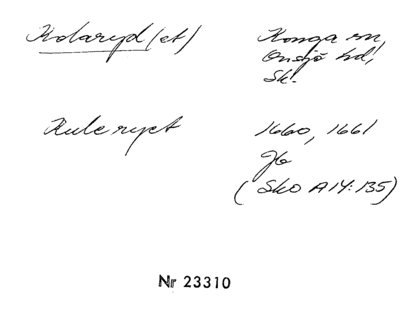 Kolaryd (et) Konga sn,
Onsjö hd,
Sk.
Kuleryct 1660, 1661
Jb
(Skö A14:135)
Nr 23310